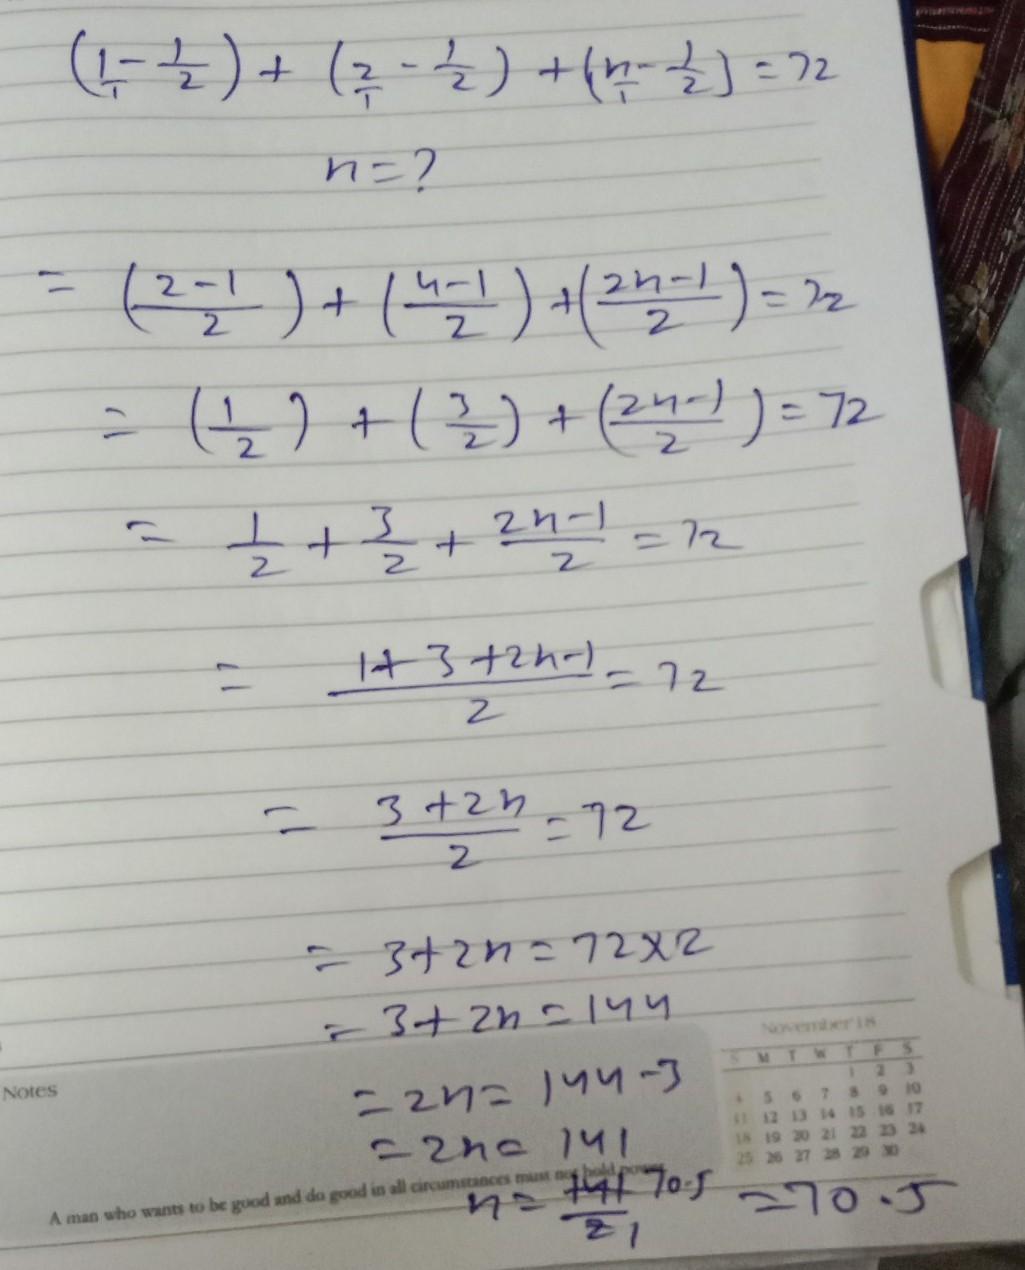 (1/1 - 1/2) + (2/1 - 1/2) + (n/1 - 1/2) = 72
n = ?
= (2-1/2) + (4-1/2) + (2n-1/2) = 72
= (1/2) + (3/2) + (2n-1/2) = 72
= 1/2 + 3/2 + 2n-1/2 = 72
= 1+3+2n-1/2 = 72
= 3+2n/2 = 72
= 3+2n = 72×2
= 3+2n = 144
November'18
S M T W T F S
1 2 3
4 5 6 7 8 9 10
11 12 13 14 15 16 17
18 19 20 21 22 23 24
25 26 27 28 29 30
Notes
= 2n = 144-3
= 2n = 141
A man who wants to be good and do good in all circumstances must not hold power
n = 141/2 70.5 = 70.5